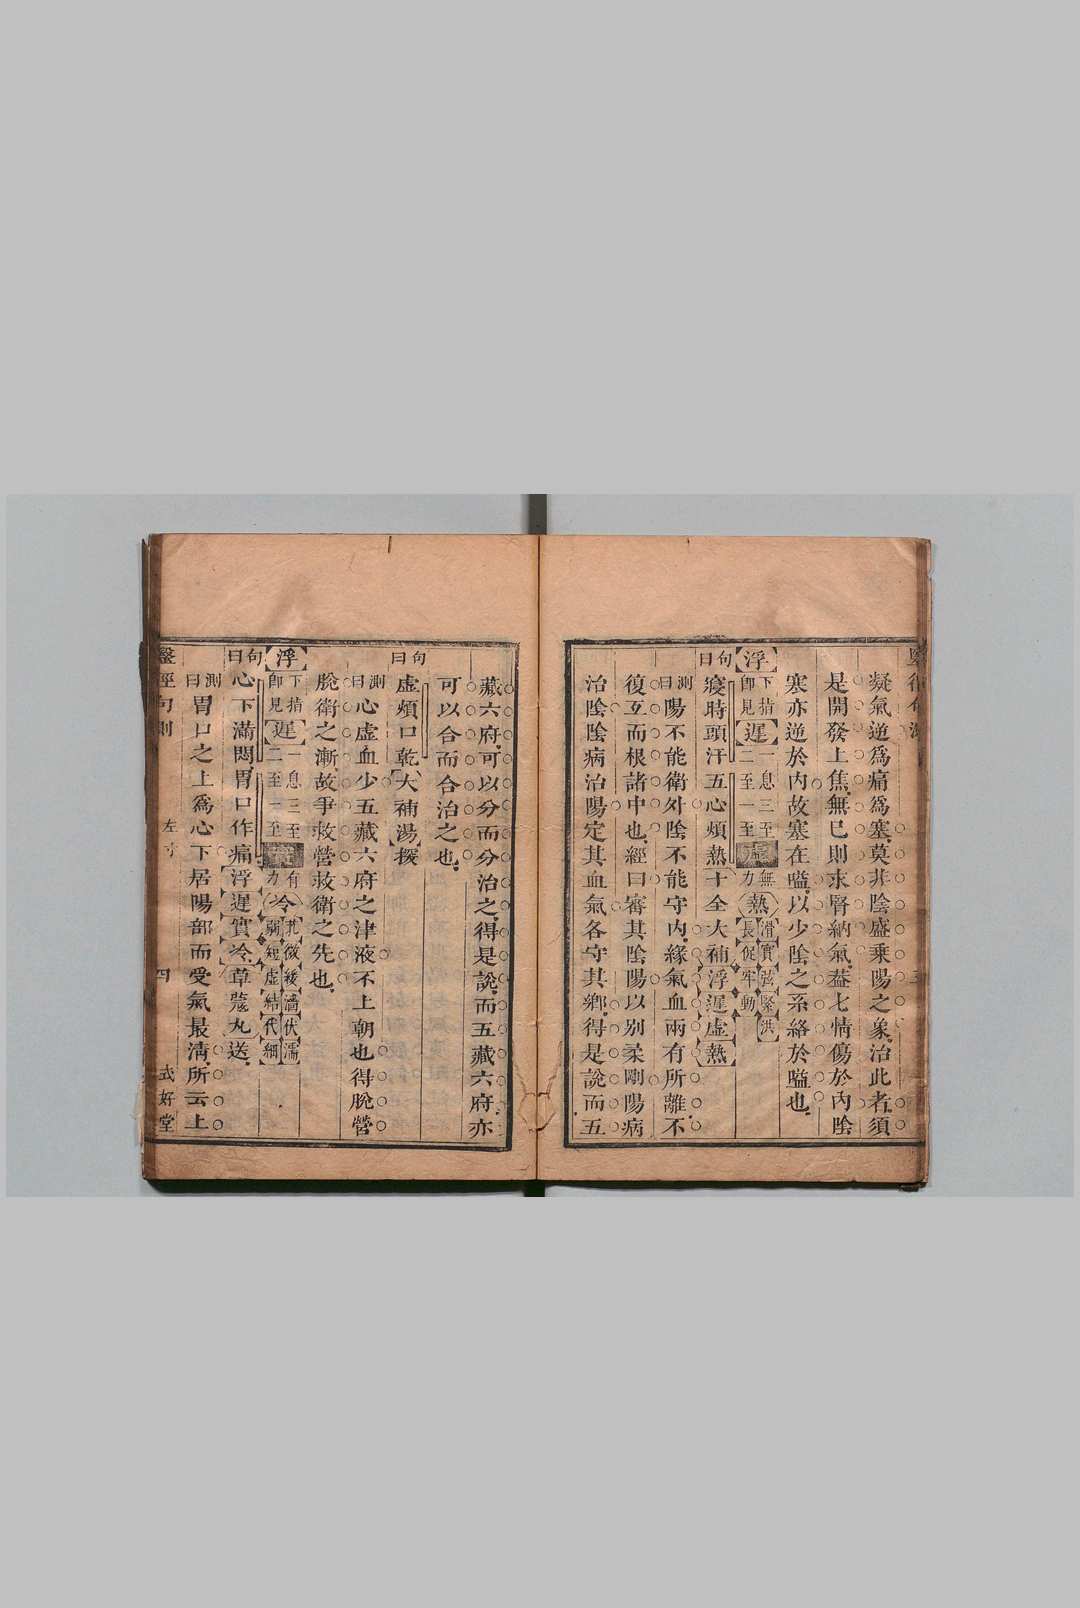 凝氣逆為痛為塞莫非陰盛乗陽之象治此者須
是開發上焦無已則求腎納氣蓋七情傷於內陰
塞亦逆於內故塞在嗌以少陰之系絡於嗌也
浮 下指即見 遲 一息三至二至一至 虛 無力 熱 滑實弦緊洪長促牢動
句曰 寢時頭汗五心煩熱十全大補浮遲虛熱
測曰 陽不能衛外陰不能守內緣氣血兩有所離不
復互而根諸中也經曰審其陰陽以別柔剛陽病
治陰陰病治陽定其血氣各守其鄉得是說而五
藏六府可以分而分治之得是說而五藏六府亦
可以合而合治之也
句曰 虛煩口乾大補湯探
測曰 心虛血少五藏六府之津液不上朝也得脫營
脫衛之漸故爭救營救衛之先也
浮 下指即見 遲 一息三至二至一至 有力 冷 芤微緩濇伏濡弱短虛結代細
句曰 心下滿悶胃口作痛浮遲實冷草蔻丸送
測曰 胃口之上為心下居陽部而受氣最清所云上
醫經句測 左寸 四 式好堂